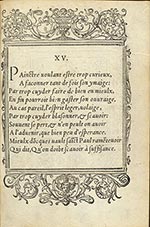 XV.
Painctre voulant estre trop curieux,
A faconner tant de fois son ymaige:
Par trop cuyder faire de bien en mieulx,
En fin pourroit bien gaster son ouuraige,
Au cas pareil, l'esprit leger, volaige,
Par trop cuyder blasonner, & scauoir:
Souuent se pert, & n'en peult on auoir
A l'aduenir, que bien peu d'esperance.
Mieulx
sainct Paul ramenteuoir
Qui dit, Qu'on doibt scauoir à suffisance.